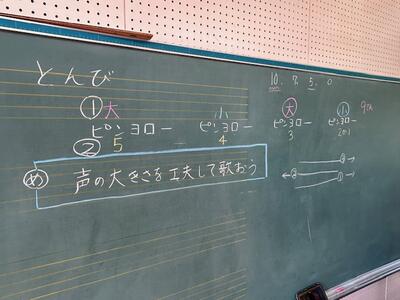 とんび
① 大 小
ピンヨロー ピンヨロー
② 5 4
め 声の大きさを工夫して歌おう
10. 7. 5. 0
大 小
ピンヨロー ピンヨロー
3